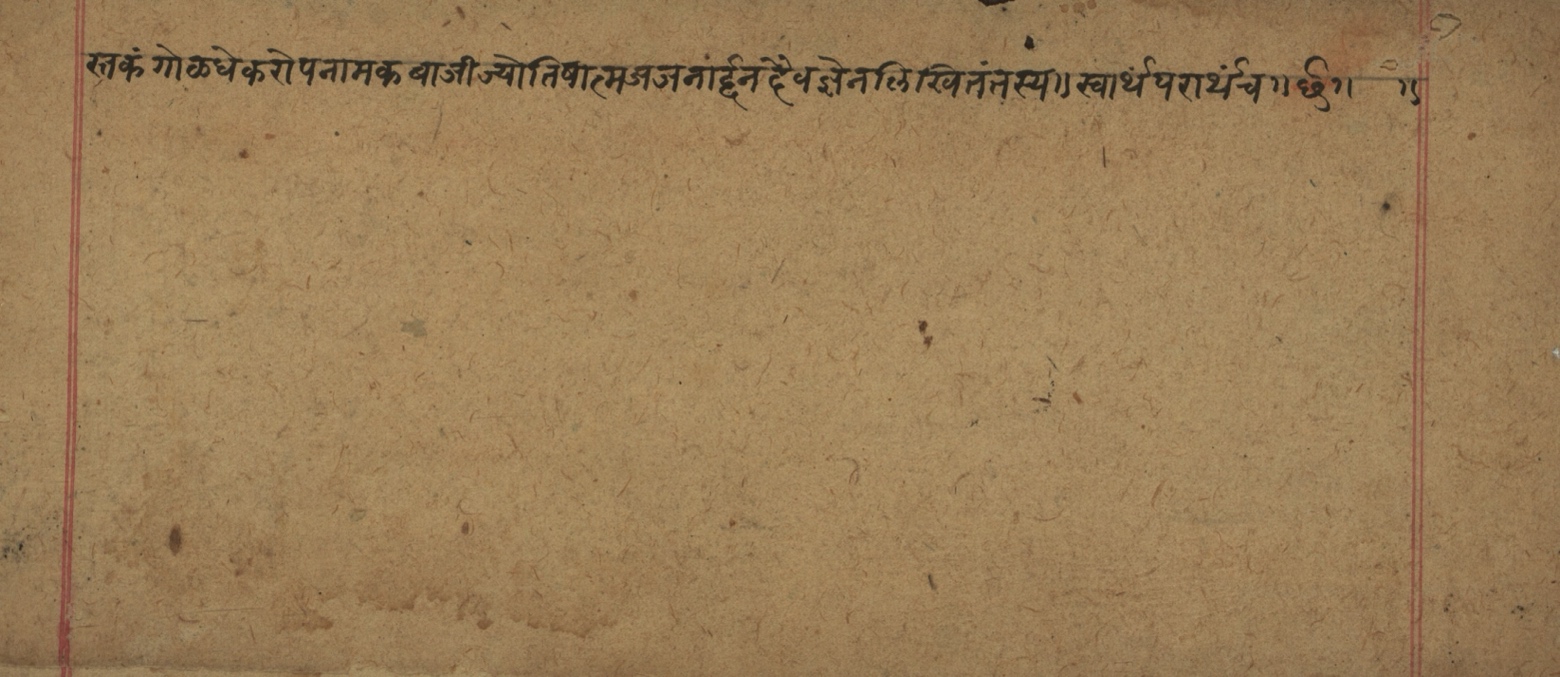 स्तकं गोळधेकरोपनामक बाजीज्योतिषात्मजजनार्द्दनदैवज्ञेनलिखितंतस्य॥ स्वार्थंपरार्थंच॥ छ॥ ॥